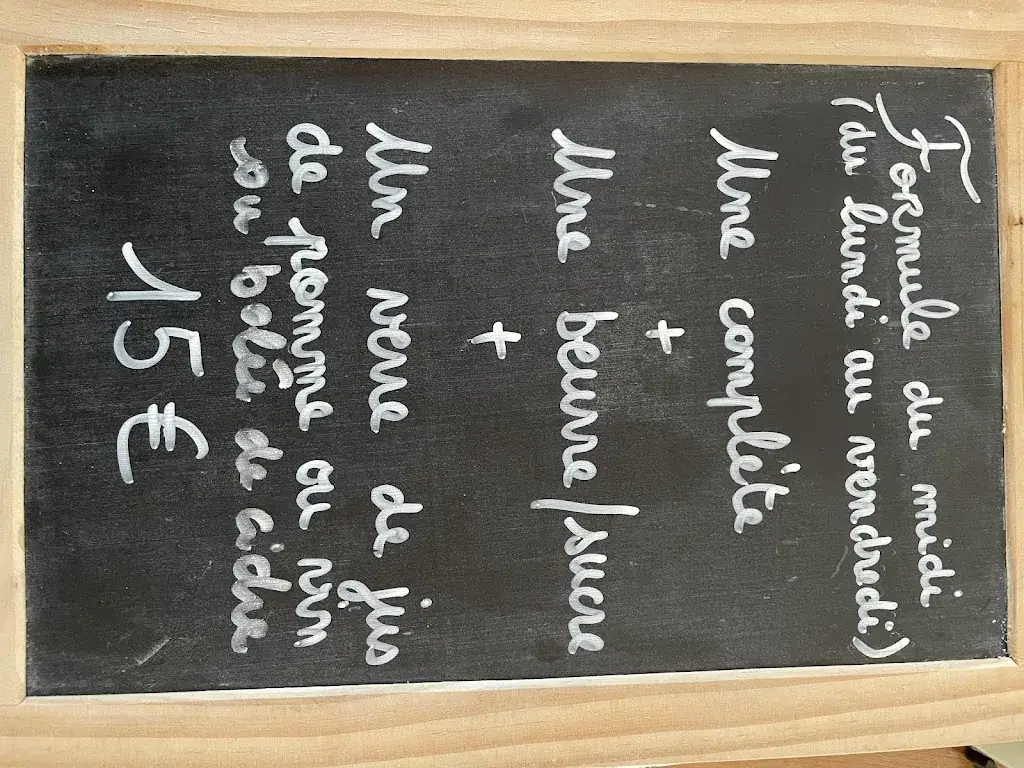 Formule du midi
(du lundi au vendredi)
Une complète
+
Une beurre/sucre
+
Un verre de jus
de pomme ou vin
ou bolée de cidre
15 €